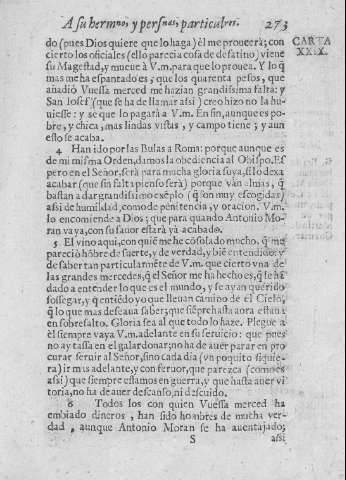 A su hermno, y persnas, particulres. 273
CARTA
XXIX.
do (pues Dios quiere que lo haga) èl me proueerà; con
cierto los oficiales (ello parecia cosa de desatino) viene
su Magestad, y mueue à V.m. para que lo prouea. Y lo q̃
mas me ha espantado es, que los quarenta pesos, que
añadiò Vuessa merced me hazian grandissima falta: y
San Iosef (que se ha de llamar assi) creo hizo no la hu-
uiesse: y sè que lo pagarà a V.m. En fin, aunque es po-
bre, y chica, mas lindas vistas, y campo tiene; y aun
esto se acaba.
4 Han ido por las Bulas a Roma: porque aunque es
de mi misma Orden, damos la obediencia al Obispo. Es
pero en el Señor, serà para mucha gloria suya, si lo dexa
acabar (que sin falta pienso serà) porque vàn almas, q̃
bastan a dar grandissimo exẽplo (q̃ son muy escogidas)
assi de humildad, como de penitencia, y oracion. V.m.
lo encomiende a Dios; que para quando Antonio Mo-
ran vaya, con su fauor estarà yà acabado.
5 El vino aqui, con quiẽ me he cõsolado mucho, q̃ me
pareciò hõbre de suerte, y de verdad, y biẽ entendido: y
de saber tan particularmẽte de V.m. que cierto vna de
las grandes mercedes, q̃ el Señor me ha hecho es, q̃ le hã
dado a entender lo que es el mundo, y se ayan querido
sossegar, y q̃ entiẽdo yo que lleuan camino de el Cielo,
q̃ lo que mas deseaua saber; que siẽpre hasta aora estaua
en sobresalto. Gloria sea al que todo lo haze. Plegue a
èl siempre vaya V.m. adelante en su seruicio: que pues
no ay tassa en el galardonar; no ha de auer parar en pro
curar seruir al Señor, sino cada dia (vn poquito siquie-
ra) ir mas adelante, y con feruor, que parezca (como es
assi) que siempre estamos en guerra, y que hasta auer vi
toria, no ha de auer descanso, ni descuido.
6 Todos los con quien Vuessa merced ha
embiado dineros, han sido hombres de mucha ver-
dad, aunque Antonio Moran se ha auentajado;
S assi